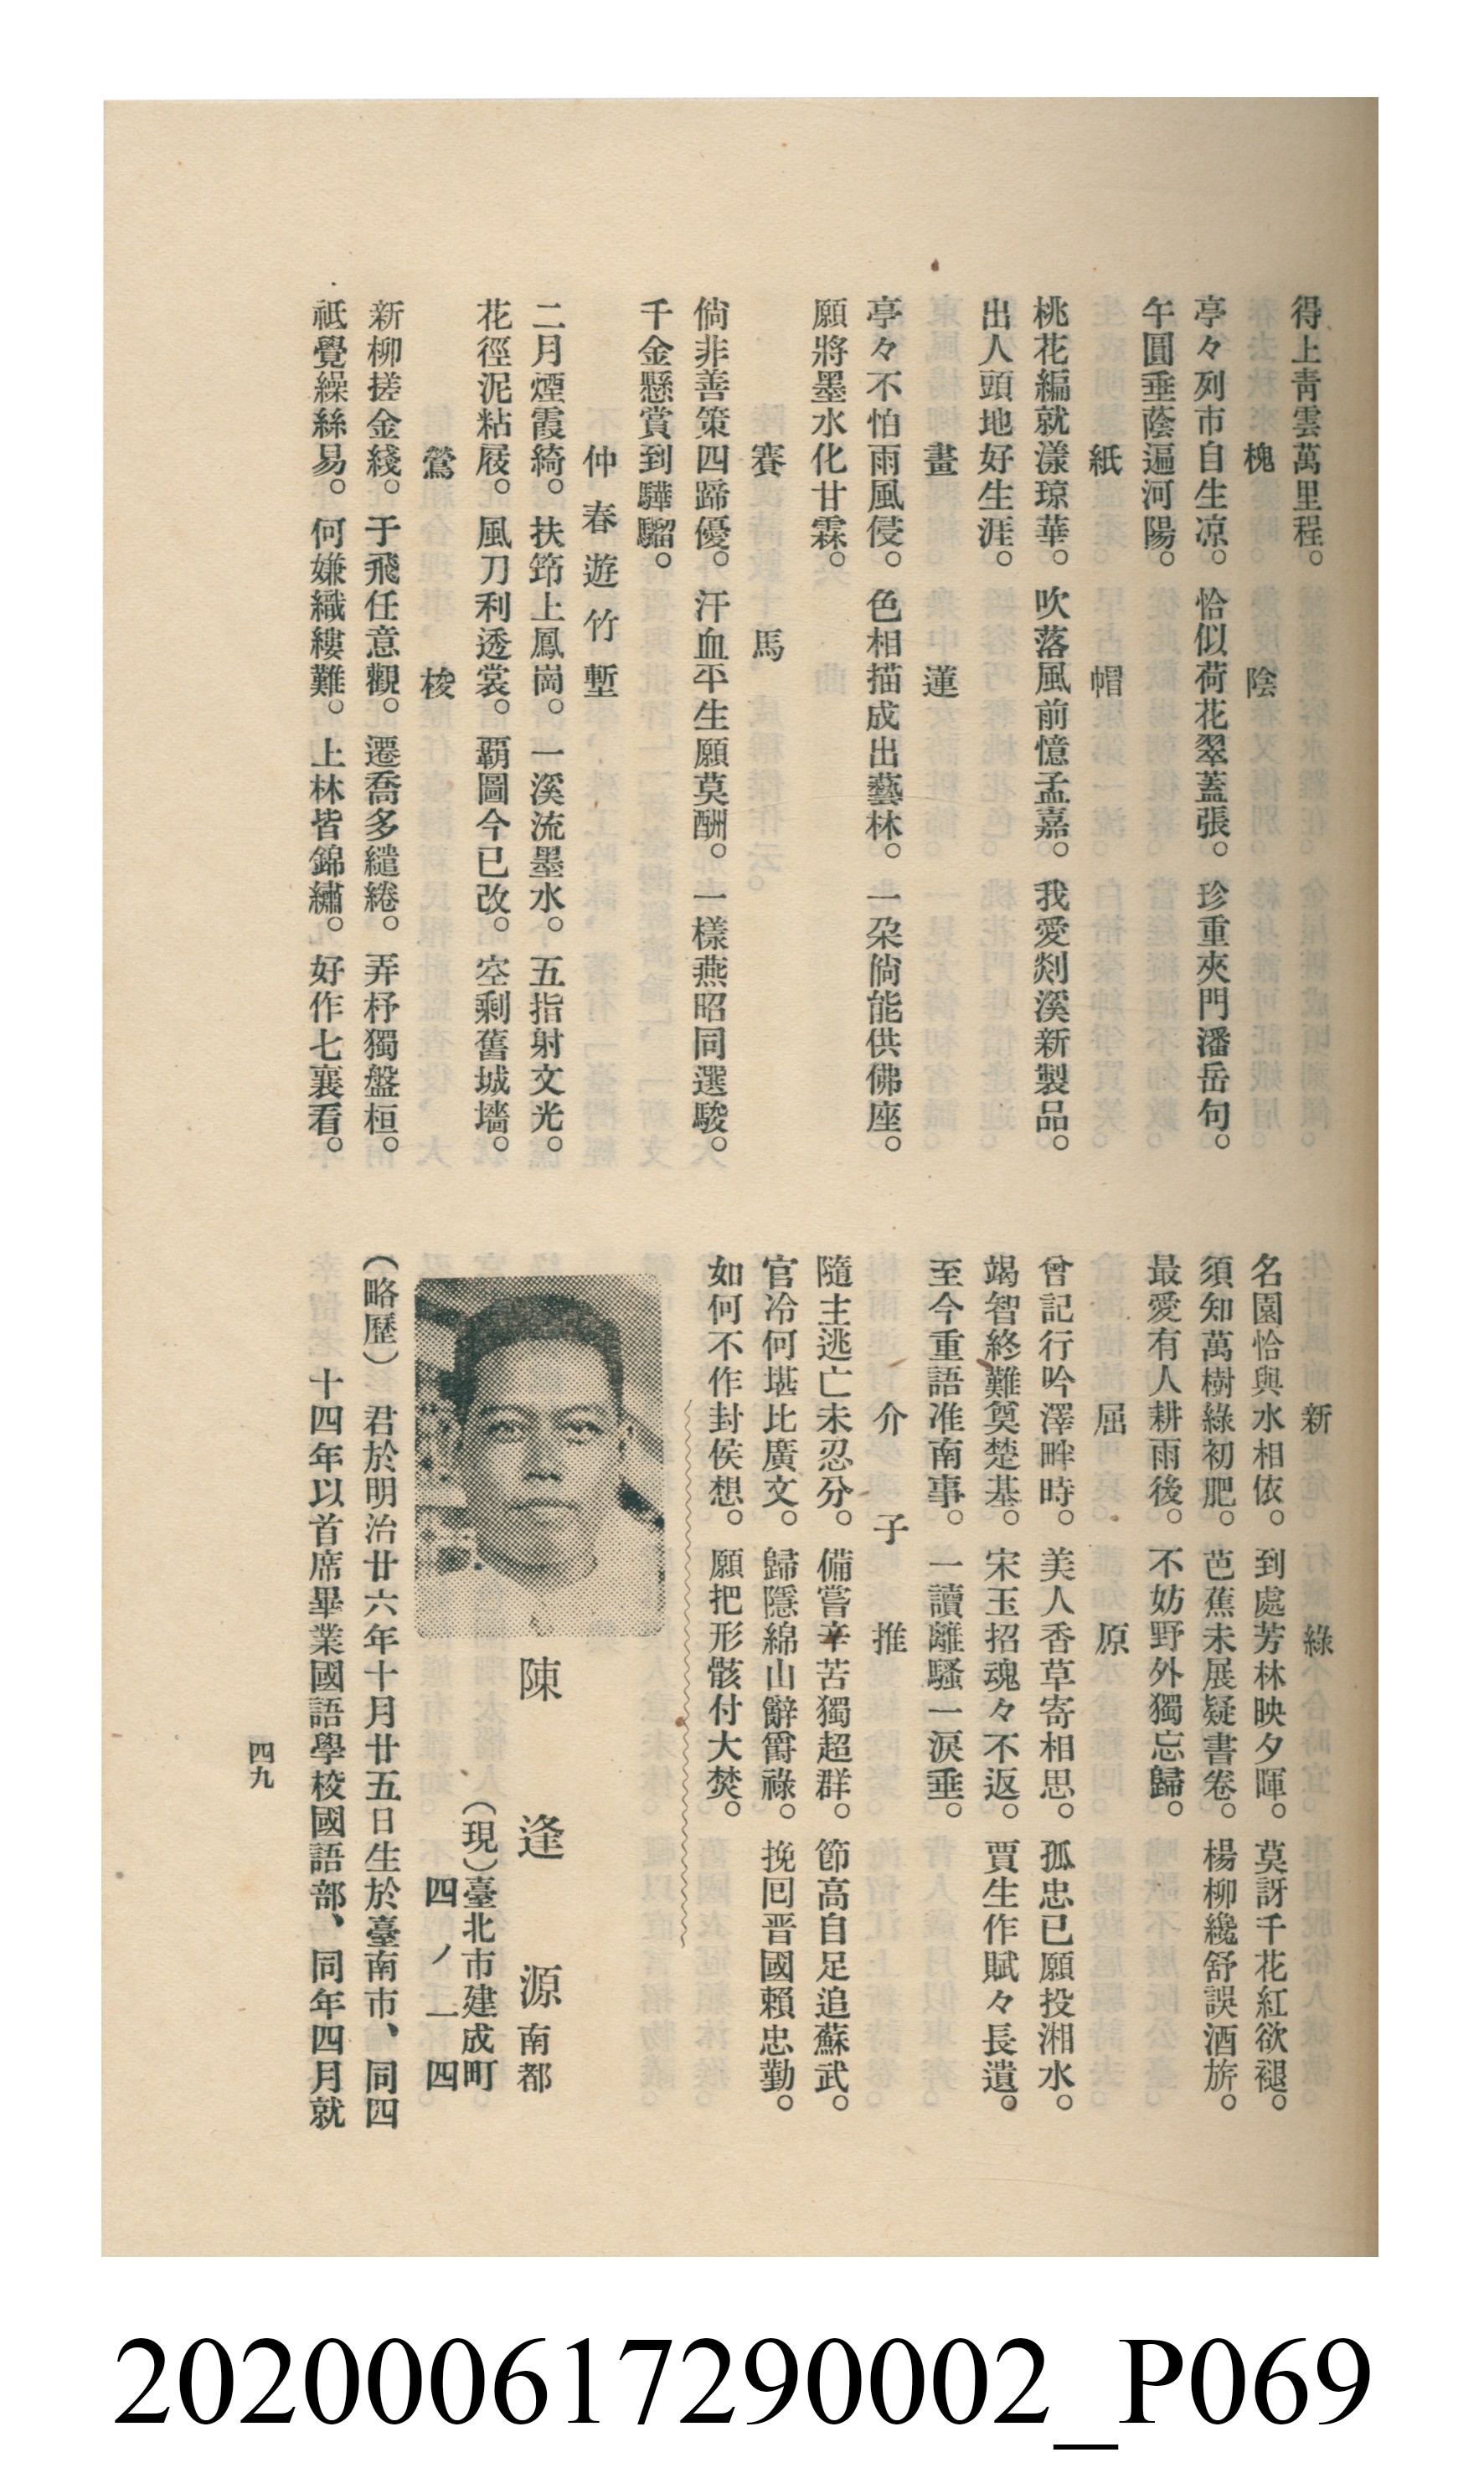 得上靑雲萬里程。
槐陰
亭々列市自生凉。恰似荷花翠蓋張。珍重夾門潘岳句。
午圓垂蔭遍河陽。
紙帽
桃花編就漾琼華。吹落風前憶孟嘉。我愛剡溪新製品。
出人頭地好生涯。
畫蓮
亭々不怕雨風侵。色相描成出藝林。一朶倘能供佛座。
願將墨水化甘霖。
賽馬
倘非善策四蹄優。汗血平生願莫酬。一樣燕昭同選駿。
千金懸賞到驊騮。
仲春遊竹塹
二月煙霞綺。扶筇上鳳崗。一溪流墨水。五指射文光。
花徑泥粘屐。風刀利透裳。覇圖今已改。空剩舊城墻。
鶯梭
新柳搓金綫。于飛任意觀。遷喬多繾綣。弄杼獨盤桓。
祗覺繰絲易。何嫌織縷難。上林皆錦繡。好作七襄看。
新綠
名園恰與水相依。到處芳林映夕暉。莫訝千花紅欲褪。
須知萬樹綠初肥。芭蕉未展疑書卷。楊柳纔舒誤酒旂。
最愛有人耕雨後。不妨野外獨忘歸。
屈原
曾記行吟澤畔時。美人香草寄相思。孤忠已願投湘水。
竭智終難奠楚基。宋玉招魂々不返。賈生作賦々長遺。
至今重語准南事。一讀離騷一淚垂。
介子推
隨主逃亡未忍分。備嘗辛苦獨超群。節高自足追蘇武。
官冷何堪比廣文。歸隱綿山辭爵祿。挽囘晋國賴忠勤。
如何不作封侯想。願把形骸付大焚。
陳逢源南都
(現)臺北市建成町
四ノ一四
(略歷)君於明治廿六年十月廿五日生於臺南市、同四
十四年以首席畢業國語學校國語部、同年四月就
四九
202000617290002_P069